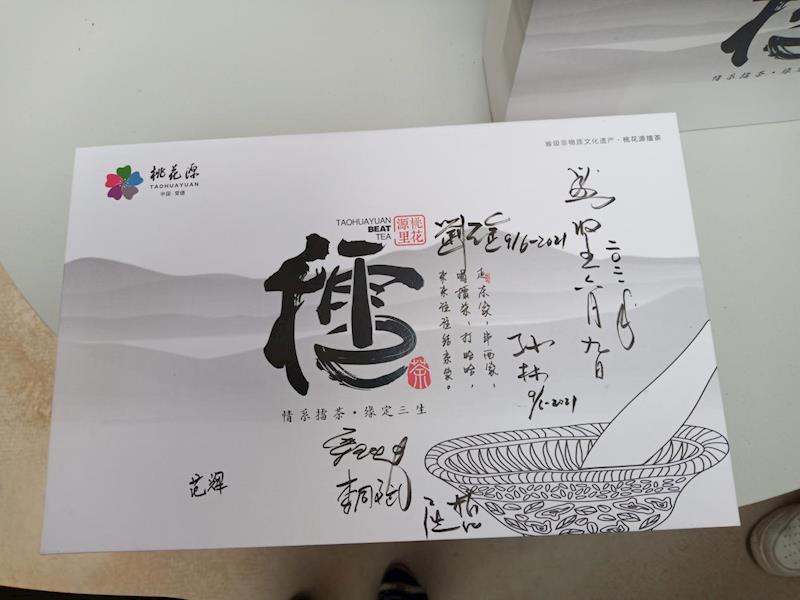 情系擂茶·缘
省级非物质文化遗产·桃花源擂茶
桃花源
TAOHUAYUAN
中国·常德
TAOHUAYUAN
BEAT
TEA
桃花
源里
擂
茶
9/6-2021
二〇二一年
六月九日
走东家,串西家,
喝擂茶,打哈哈,
来来往往结亲家。
孙林
9/6-2021
情系擂茶·缘定三生
范辉